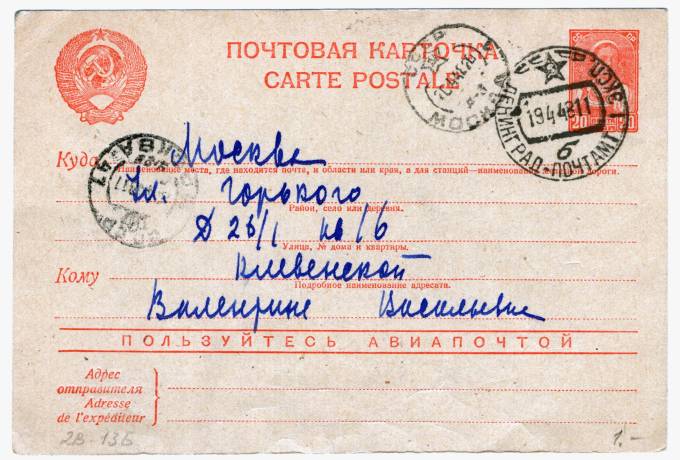 ПОЧТОВАЯ КАРТОЧКА
CARTE POSTALE
20
МОСКВА
ЛЕНИНГРАД ПОЧТАМТ ЭКСП.
19 4 48 11
6
МОСКВА-47
Куда Москва
Наименование места, где находится почта, и области или края, а для станций—наименование железной дороги.
Ул. Горького
Район, село или деревня.
Д кв 16
Улица, № дома и квартиры.
Кому Клевенской
Подробное наименование адресата.
Валентине Васильевне
ПОЛЬЗУЙТЕСЬ АВИАПОЧТОЙ
Адрес
отправителя
Adresse
de l'expéditeur
2В-13Б
1.-